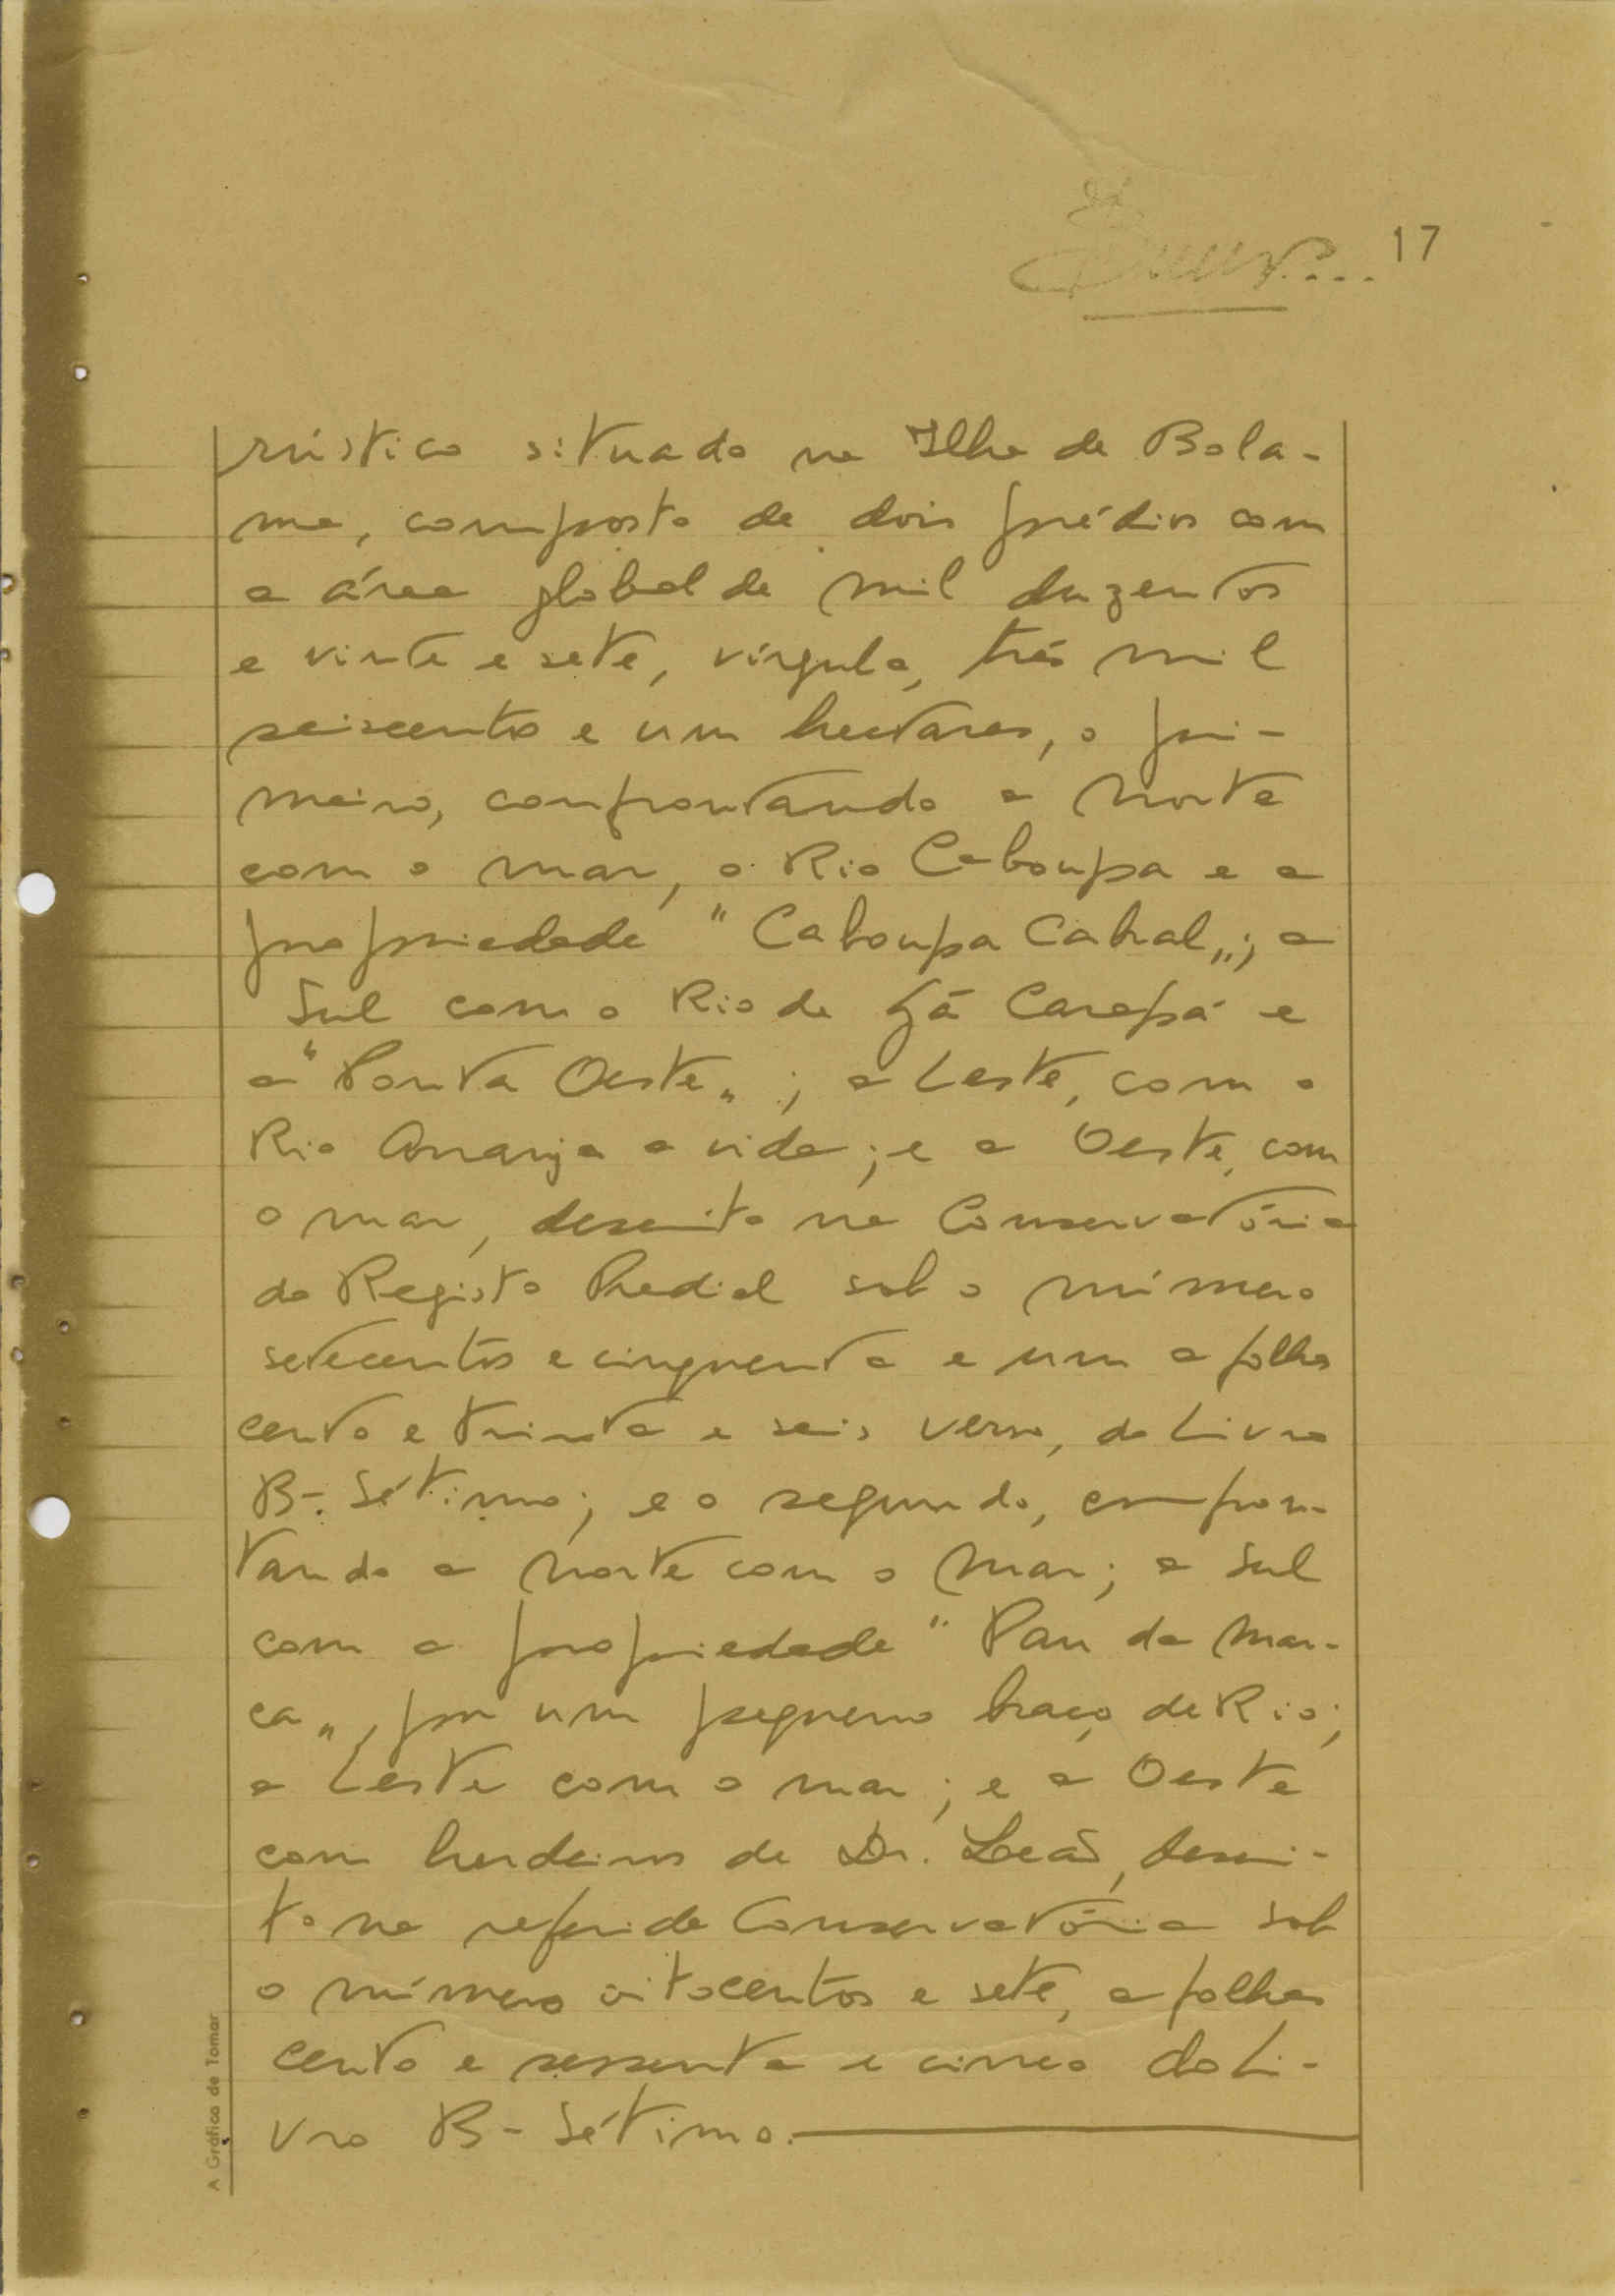 17
rústico situado na Ilha de Bola-
ma, composto de dois prédios com
a área global de mil duzentos
e vinte e sete, vírgula, três mil
seiscentos e um hectares, o pri-
meiro, confrontando a Norte
com o mar, o Rio Caboupa e a
propriedade "Caboupa Cabral„; a
Sul com o Rio de Gã Carapá e
a "Ponta Oeste„; a Leste, com o
Rio Arranja a vida; e a Oeste, com
o mar, descrito na Conservatória
do Registo Predial sob o número
setecentos e cinquenta e um a folhas
cento e trinta e seis verso, do Livro
B-Sétimo; e o segundo, confron-
tando a Norte com o mar; a Sul
com a propriedade "Pau da Mar-
ca„, por um pequeno braço de Rio;
a Leste com o mar; e a Oeste
com herdeiros de Dr. Leão, descri-
to na referida Conservatória sob
o número oitocentos e sete, a folhas
cento e sessenta e cinco do Li-
vro B-Sétimo.
A Gráfica de Tomar